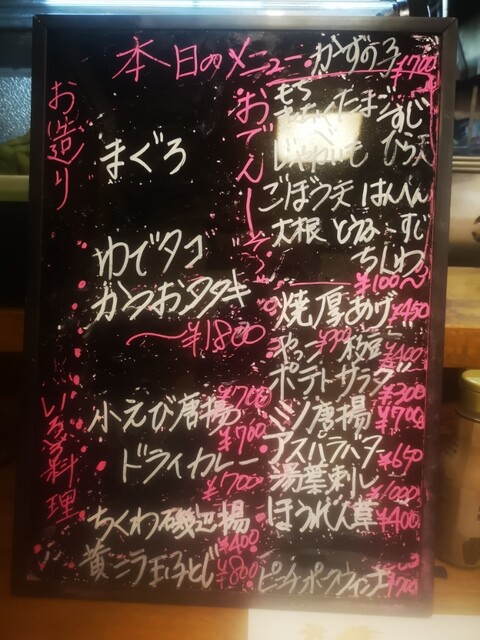 本日のメニュー
かずの子 ¥700
お造り
まぐろ
ゆでタコ
かつおタタキ
〜¥1800
いろいろ料理
¥700
小えび唐揚
¥700
ドライカレー
¥700
ちくわ磯辺揚
¥400
黄ニラ玉子とじ
¥800
おでん
もち
たまご すじ
じゃがいも ひら天
ごぼう天 はんぺん
大根 とうふ すじ
ちくわ
¥100〜
焼厚あげ ¥450
やっこ ¥300 枝豆 ¥400
ポテトサラダ
¥300
ミノ唐揚 ¥700
アスパラバター
¥650
湯葉刺し
¥1000
ほうれん草 ¥400
ピッチポークウィンナー ¥700